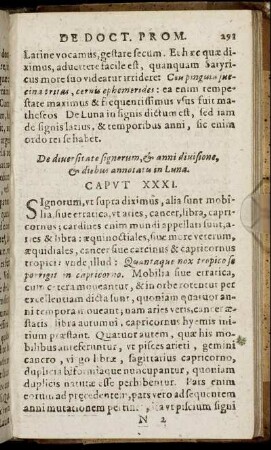 DE DOCT. PROM. 291
Latine vocamus, gestare secum. Et hæc quæ di-
ximus, advertere facile est, quanquam Satyri-
cus more suo videatur irridere:
ea enim tempe-
state maximus & frequentissimus usus fuit ma-
theseos De Luna in signis dictum est, sed iam
de signis latius, & temporibus anni, sic enim
ordo rei se habet.
De diversitate signorum, & anni divisione,
& diebus annotatu in Luna.
CAPVT XXXI.
SIgnorum, vt supra diximus, alia sunt mobi-
lia, siue erratica, vt aries, cancer, libra, capri-
cornus; cardines enim mundi appellari sunt, a-
ries & libra: æquinoctiales, siue more veterum,
æquidiales, cancer siue carcinus & capricornus
tropici: vnde, illud: Quantaque nox tropico se
porrigit in capricorno. Mobilia siue erratica,
cum cetera moueantur, & in orbe rotentur per
excellentiam dicta sunt, quoniam quatuor an-
ni tempora moueant; nam aries veris, cancer æ-
statis libra autumni, capricornus hyemis ini-
tium præstant. Quatuor autem, quæ his mo-
bilibus anteferuntur, vt pisces arieti, gemini
cancro, virgo libræ, sagittarius capricorno,
duplicia biformiaque nuncupantur, quoniam
duplicis naturæ esse perhibentur. Pars enim
eorum ad præcedentem, pars vero ad sequentem
anni mutationem pertinet, ita vt piscium signi
N 2